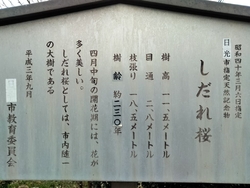 昭和四十年三月六日指定
日光市指定天然記念物
しだれ桜
樹高 一一、五メートル
目通 二、八メートル
枝張り 一八、五メートル
樹齢 約二二〇年
四月中旬の開花期には、花が
多く美しい。
しだれ桜としては、市内随一
の大樹である
平成三年九月
市教育委員会